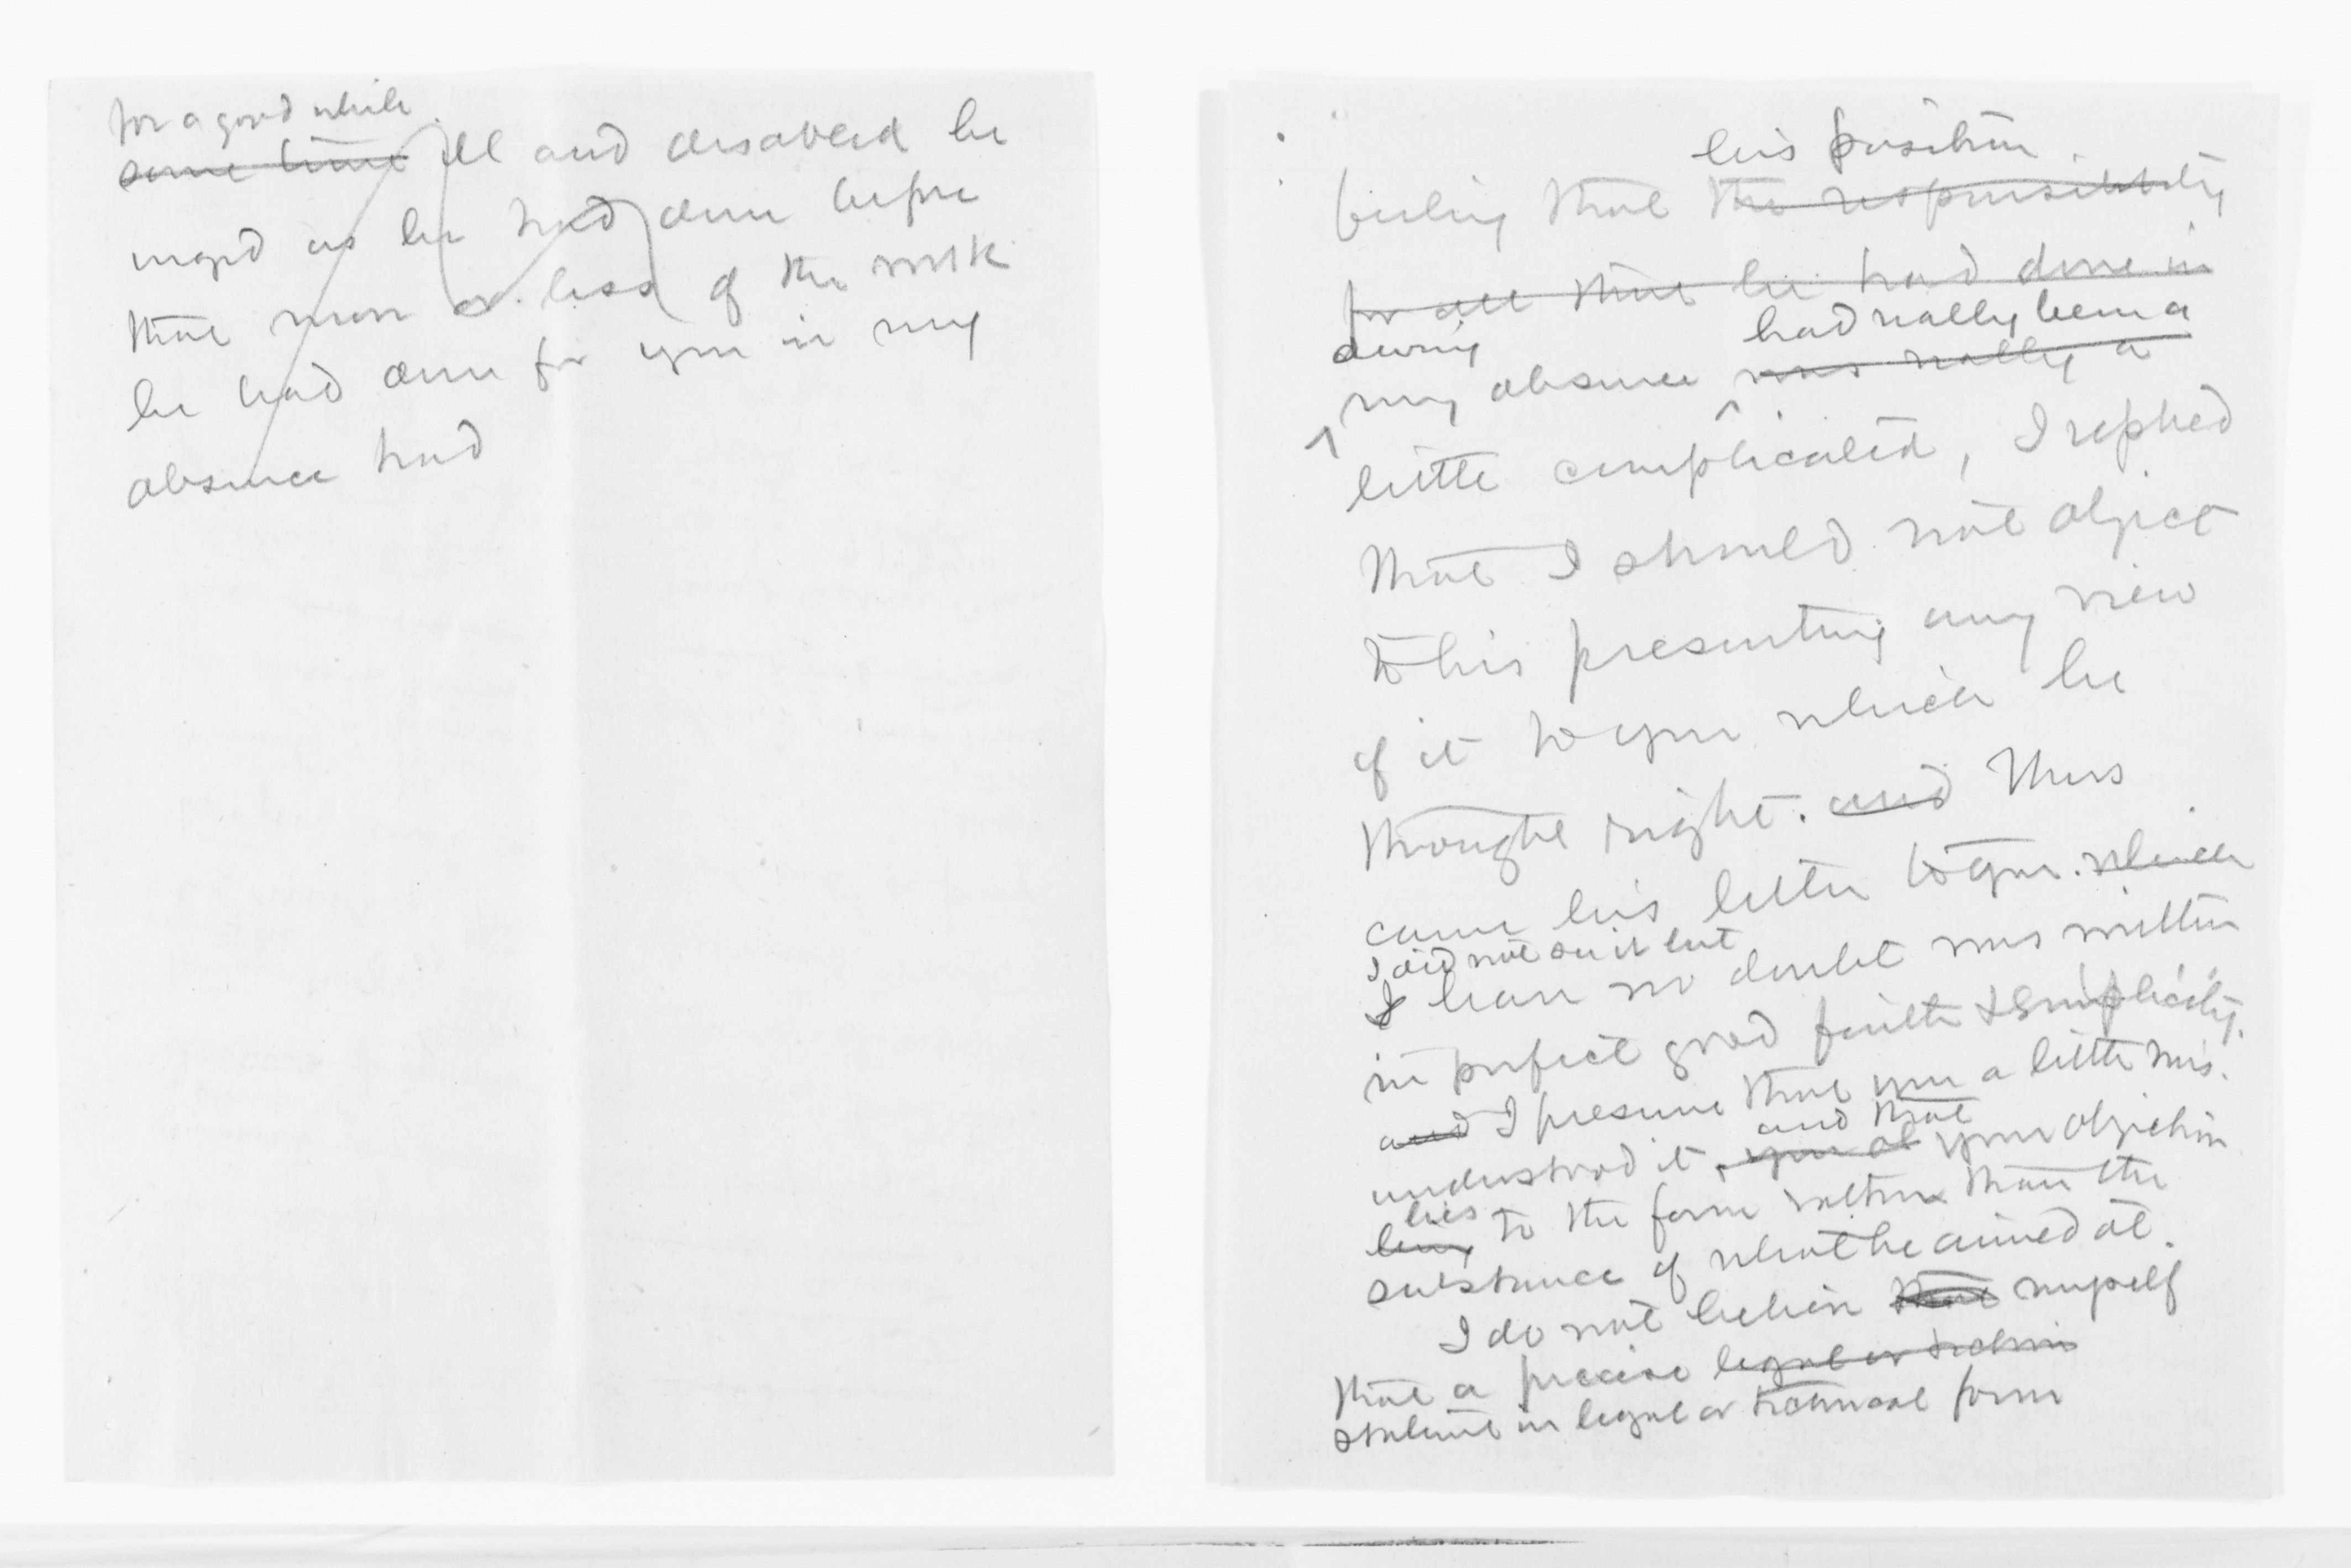 for a good while
some time ill and disabled he
urged as he had done before
that more or less of the work
he had done for you in my
absence had
his position
feeling that the responsibility
for all that he had done in
during had really been a
my absence was really a
little complicated, I replied
that I should not object
to his presenting any view
of it to you which he
thought right. and Thus
came his letter to you. which
I did not see it but
I have no doubt was written
in perfect good faith & simplicity.
and I presume that you a little mis-
and that
understood it, your ob your objection
lies
being to the form rather than the
substance of what he aimed at.
I do not believe that myself
that a precise legal or techni
statement in legal or technical form